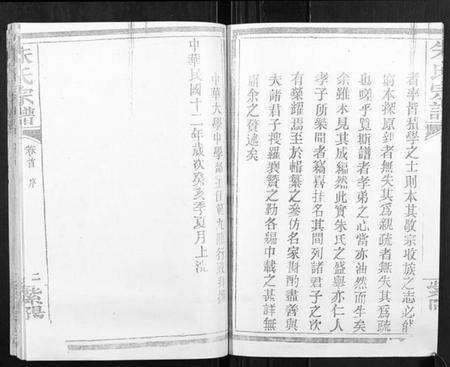 朱氏宗譜
者孝哲類學之士則本其敬宗收族之志必能
窮本探原到者無失其為親疏者無失其為疏
也嗟乎覽斯譜者孝弟之心當亦油然而生矣
余雖未見其成編然此實朱氏之盛舉亦仁人
孝子所樂聞者竊喜挂名其間列諸君子之次
有榮耀焉至於輯纂之參仿名家斟酌盡善與
夫諸君子搜羅襄贊之勤各編中載之甚詳無
庸余之贅述矣
中華民國十二年歲次癸亥季夏月上浣
中華大學中學
朱氏宗譜
卷首 序
二
紫陽